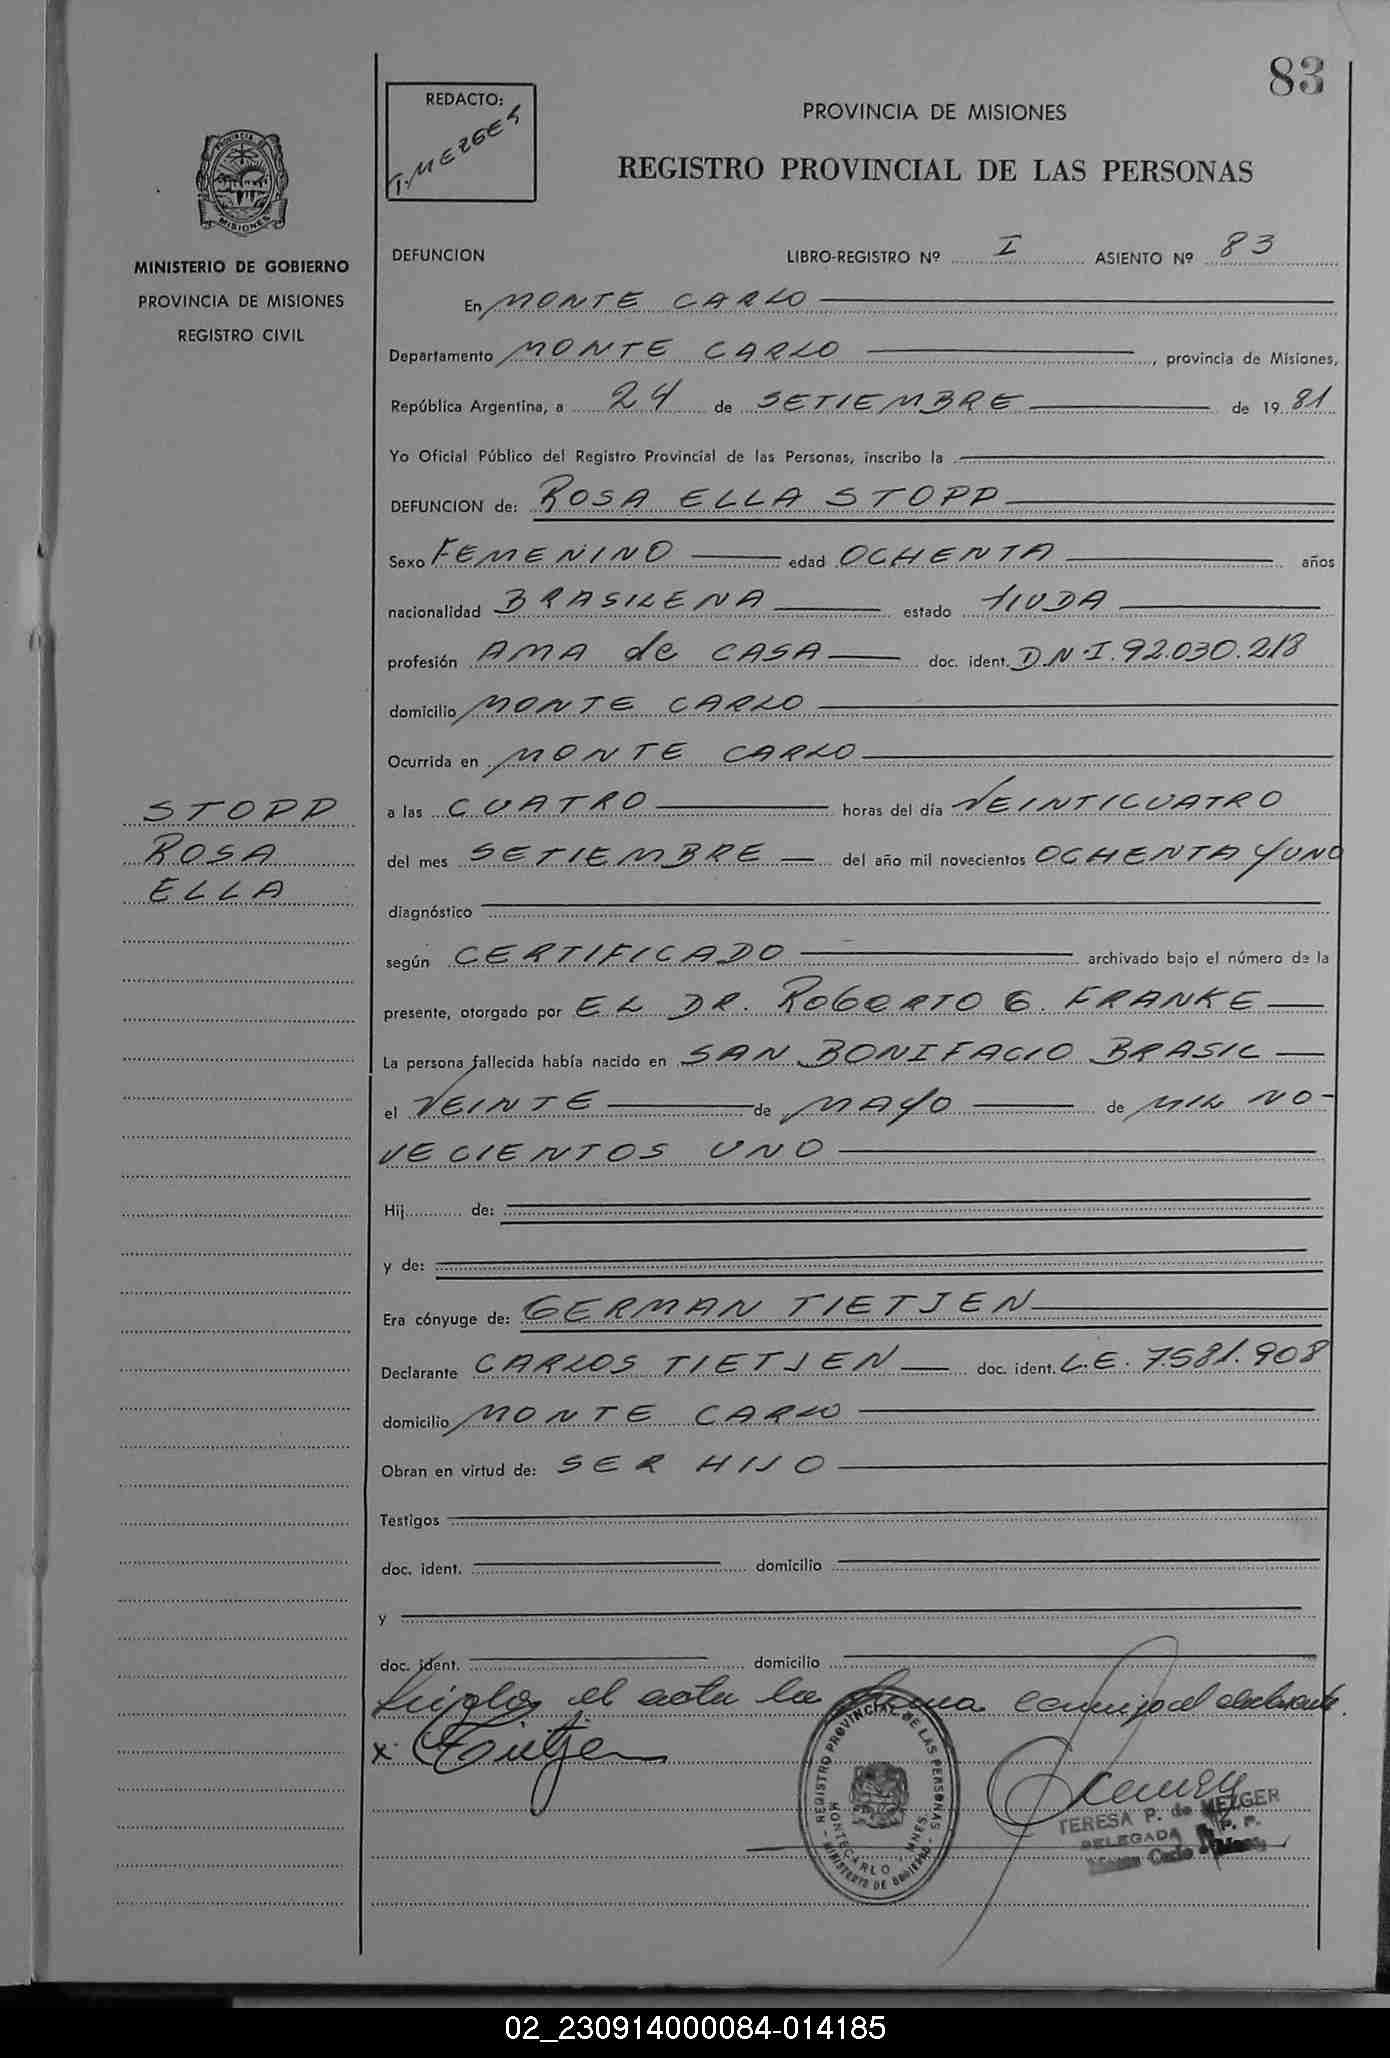 83
REDACTO:
T. MEZGER
PROVINCIA DE MISIONES
REGISTRO PROVINCIAL DE LAS PERSONAS
PROVINCIA DE
MISIONES
MINISTERIO DE GOBIERNO
PROVINCIA DE MISIONES
REGISTRO CIVIL
DEFUNCION LIBRO-REGISTRO Nº I ASIENTO Nº 83
En MONTE CARLO
Departamento MONTE CARLO, provincia de Misiones,
República Argentina, a 24 de SETIEMBRE de 19 81
Yo Oficial Público del Registro Provincial de las Personas, inscribo la
DEFUNCION de: ROSA ELLA STOPP
Sexo FEMENINO edad OCHENTA años
nacionalidad BRASILENA estado VIUDA
profesión AMA de CASA doc. ident. D.N.I. 92.030.218
domicilio MONTE CARLO
Ocurrida en MONTE CARLO
STOPP
ROSA
ELLA
a las CUATRO horas del día VEINTICUATRO
del mes SETIEMBRE del año mil novecientos OCHENTA Y UNO
diagnóstico
según CERTIFICADO archivado bajo el número de la
presente, otorgado por EL DR. ROBERTO E. FRANKE
La persona fallecida había nacido en SAN BONIFACIO BRASIL
el VEINTE de MAYO de MIL NO-
VECIENTOS UNO
Hij de:
y de:
Era cónyuge de: GERMAN TIETJEN
Declarante CARLOS TIETJEN doc. ident. L.E. 7.581.908
domicilio MONTE CARLO
Obran en virtud de: SER HIJO
Testigos
doc. ident. domicilio
y
doc. ident. domicilio
el acta la firma conmigo el declarante.
x. Tietjen
REGISTRO PROVINCIAL DE LAS PERSONAS
MONTECARLO MNES.
MINISTERIO DE GOBIERNO
TERESA P. de MEZGER
DELEGADA R. P. P.
Monte Carlo
02_230914000084-014185